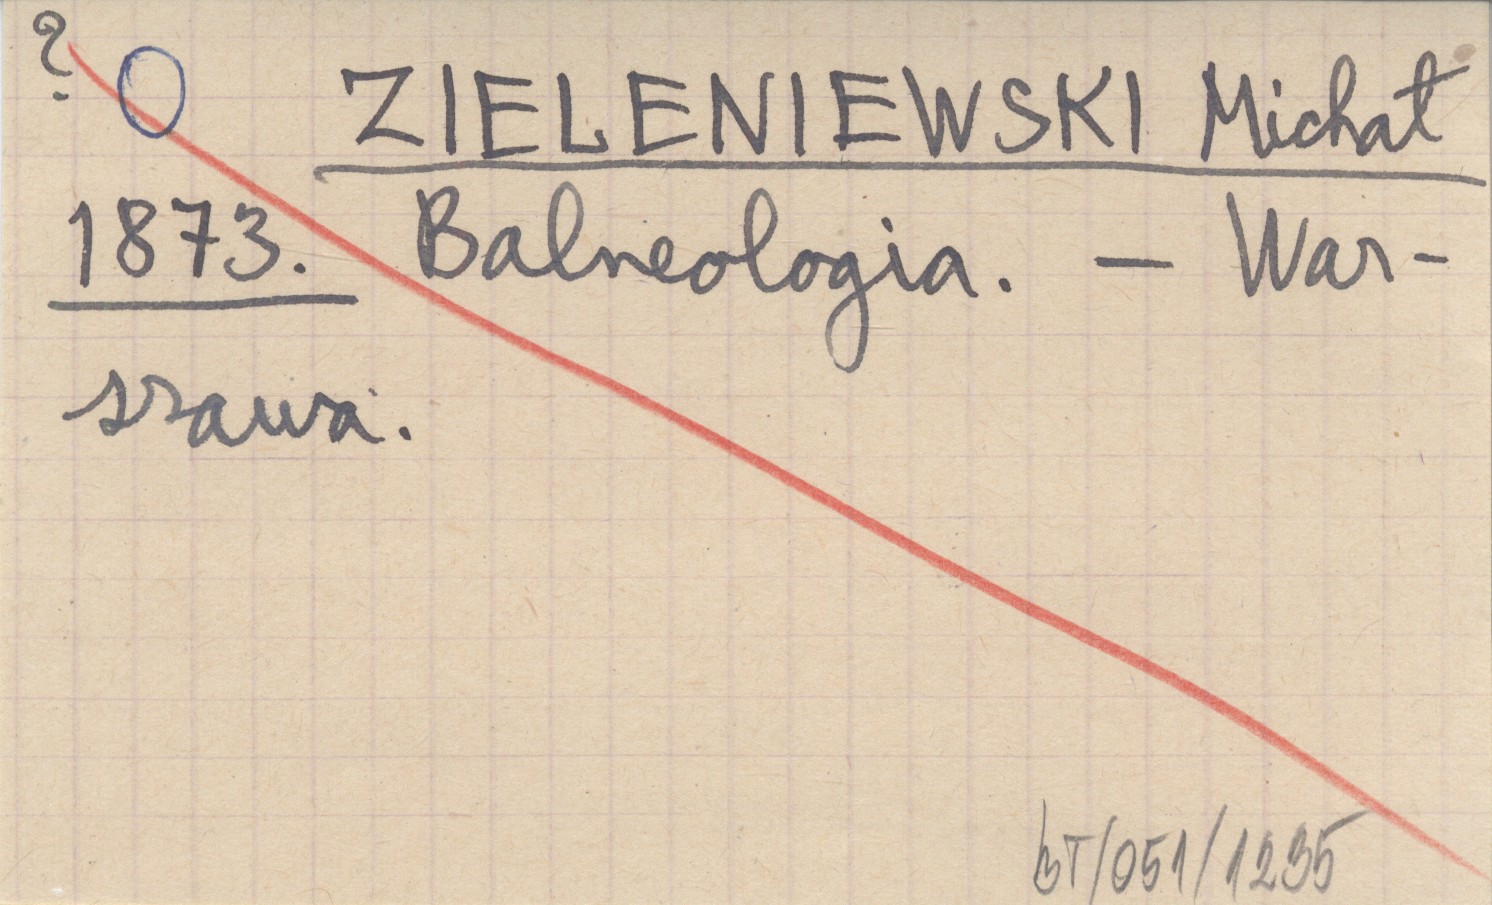 ?
O ZIELENIEWSKI Michał
1873. Balneologia. — War-
szawa.
BT/051/1235